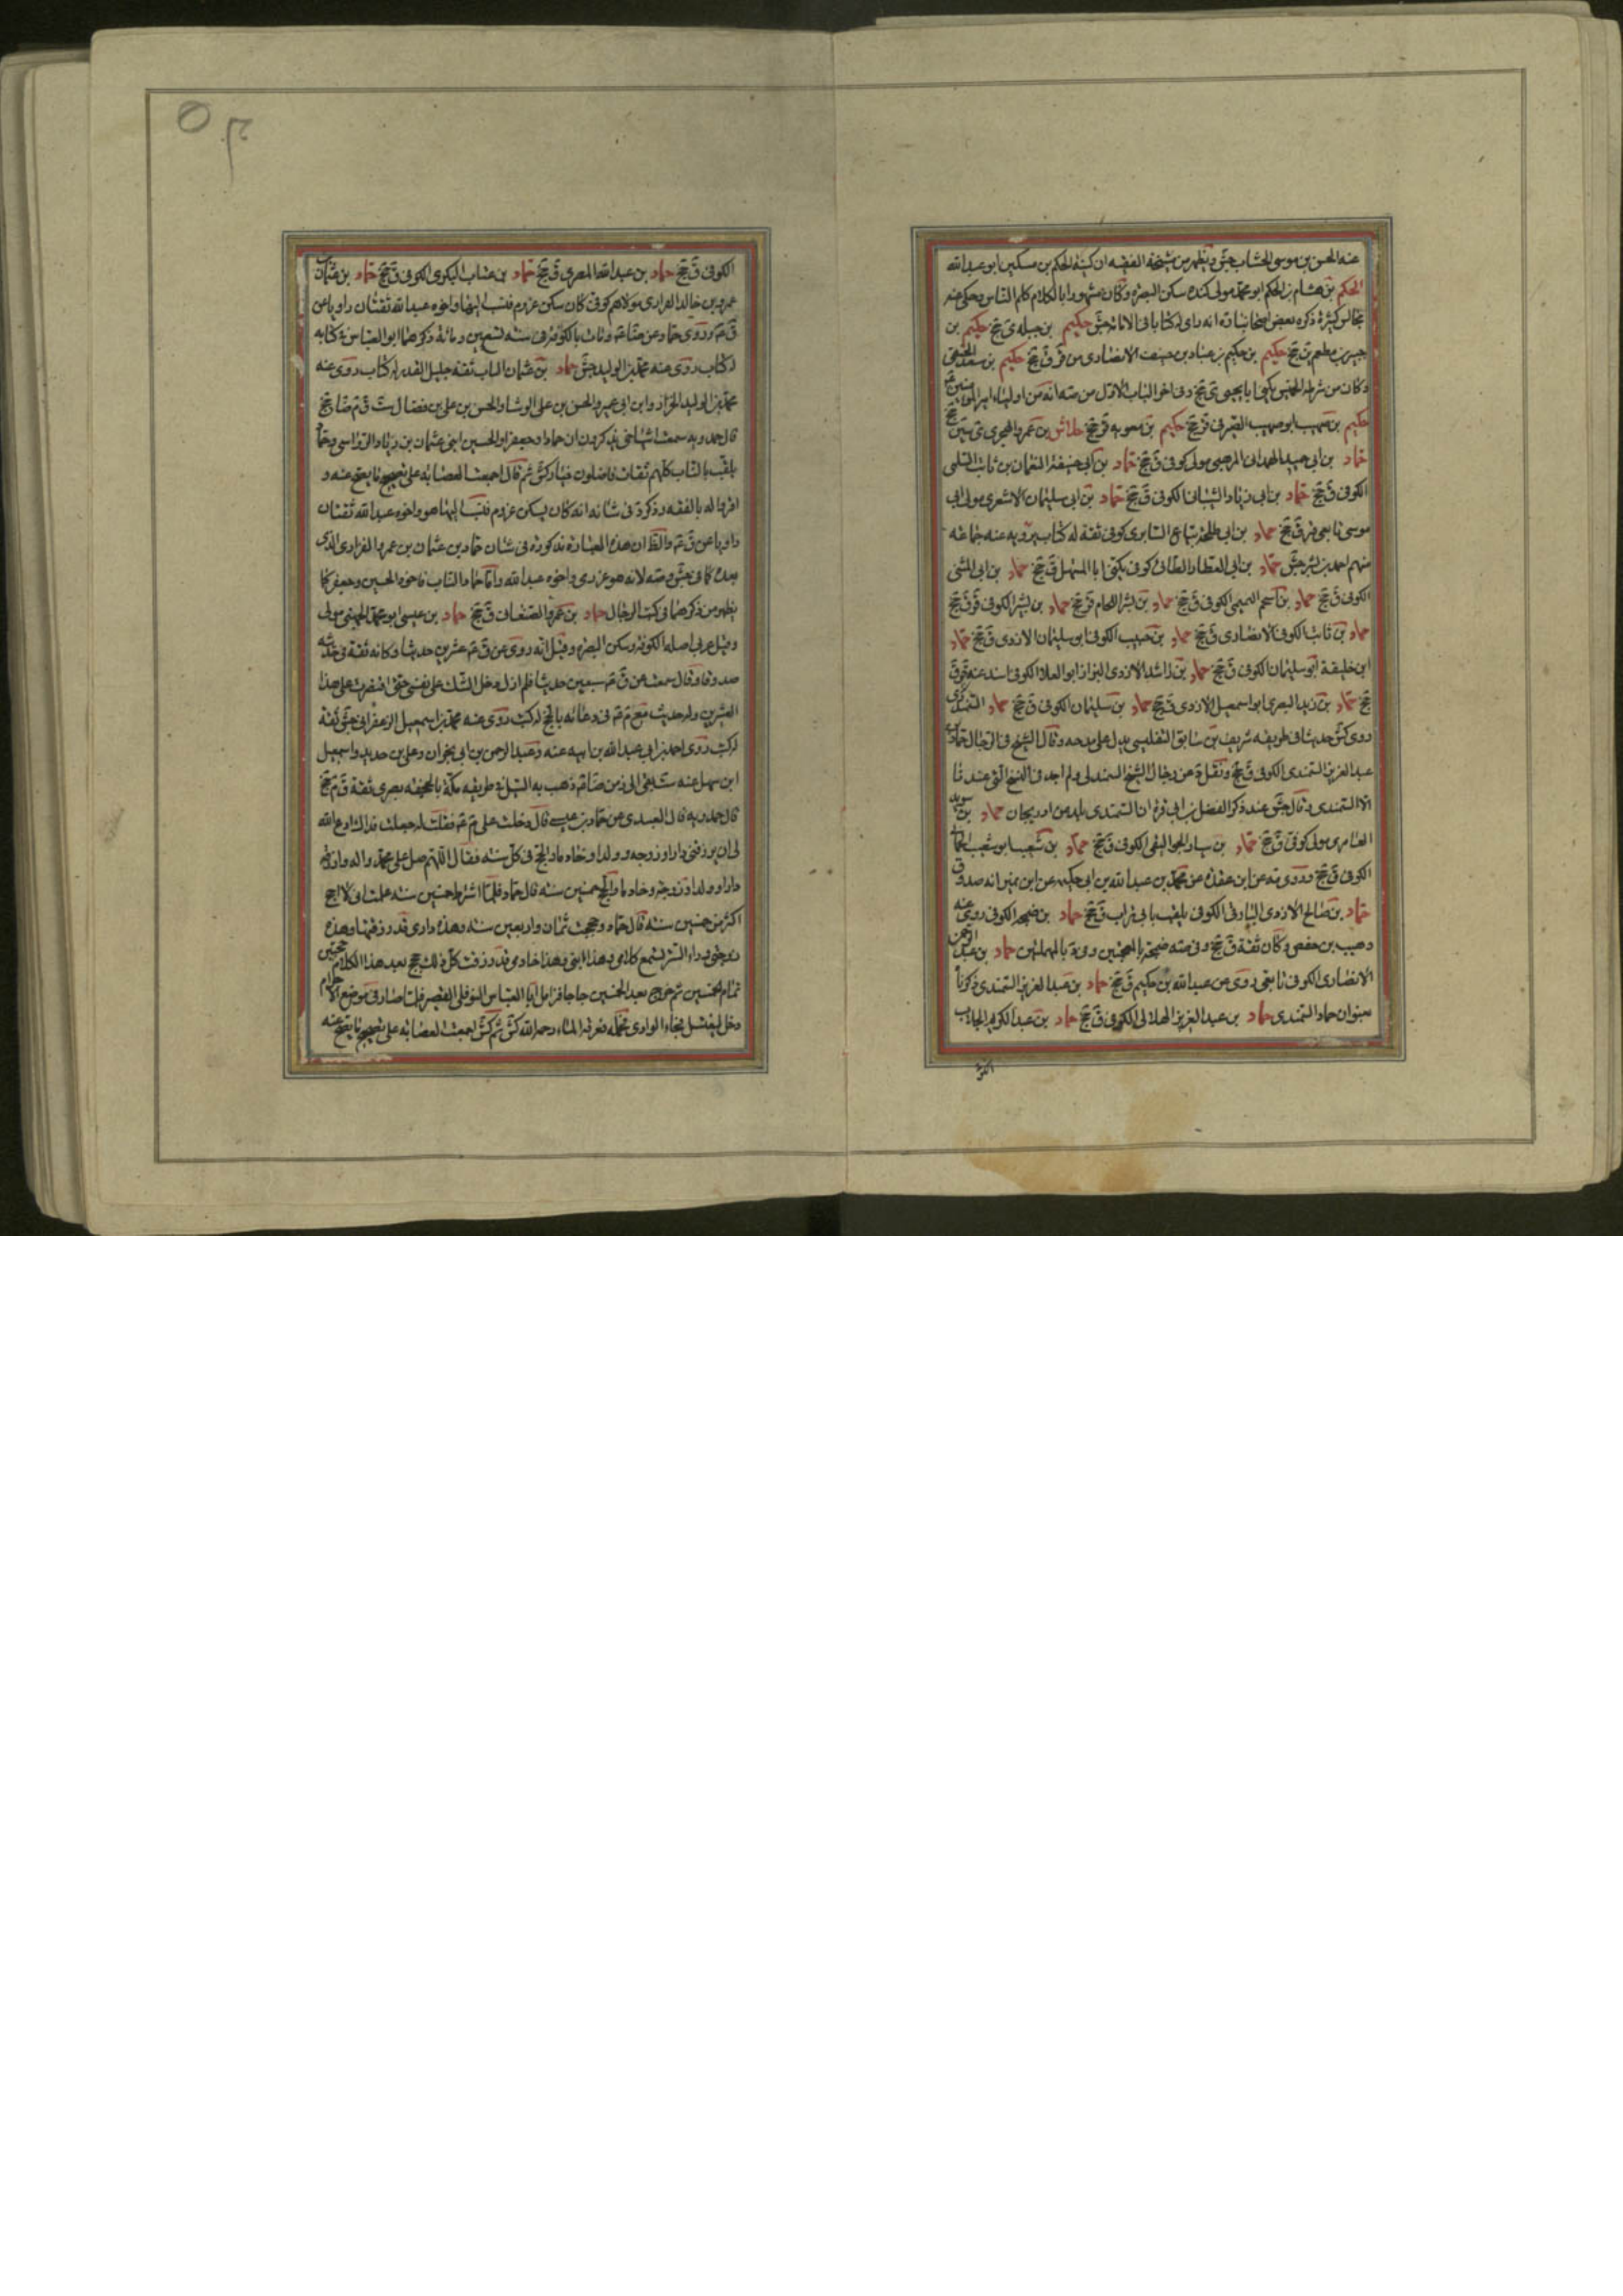 عنه الحسن بن موسى الخشاب جش ويظهر من مشيخة الفقيه ان كنية الحكم بن مسكين ابو عبد الله
الحكم بن هشام بن الحكم ابو محمد مولى كنده سكن البصره وكان مشهورا بالكلام كلم الناس وحكى عنه
مجالس كثيرة ذكر بعض اصحابنا ره انه راى له كتابا فى الامامة جش حكيم بن جبله ى جخ حكيم بن
جبير بن مطعم ين جخ حكيم بن حكيم بن عباد بن حنيف الانصارى من قر ق جخ حكيم بن سعد الحنفى
وكان من شرطة الخميس يكنى ابا يحيى ى جخ وفى اخر الباب الاول من صه انه من اولياء امير المؤمنين ع
حكيم بن صهيب ابو صهيب الصيرفى قر جخ حكيم بن معويه قر جخ حلاش بن عمرو الهجرى ى ين جخ
حماد بن ابى حميد الهمدانى المرهبى مولى كوفى ق جخ حماد بن ابى حنيفة النعمان بن ثابت السلمى
الكوفى ق جخ حماد بن ابى زياد الشيبانى الكوفى ق جخ حماد بن ابى سليمان الاشعرى مولى ابى
موسى تابعى قر ق جخ حماد بن ابى طلحة بياع السابرى كوفى ثقة له كتاب يرويه عنه جماعة
منهم احمد بن بشر جش حماد بن ابى العطارد الطائى كوفى يكنى ابا المستهل ق جخ حماد بن ابى المثنى
الكوفى ق جخ حماد بن اسحم التميمى الكوفى ق جخ حماد بن بشر اللحام قر جخ حماد بن بشير الكوفى قر ق جخ
حماد بن ثابت الكوفى الانصارى ق جخ حماد بن حبيب الكوفى ابو سليمان الازدى ق جخ حماد
ابن خليفة ابو سليمان الكوفى ق جخ حماد بن راشد الازدى البزاز ابو العلا الكوفى اسند عنه قر ق
جخ حماد بن زيد البصرى ابو اسمعيل الازدى ق جخ حماد بن سليمان الكوفى ق جخ حماد السمندرى
روى كش حديثا فى طريقه شريف بن سابق التفليسى يدل على مدحه وقال الشيخ فى الرجال حماد بن
عبد العزيز السمندى الكوفى ق جخ ونقل د عن رجال الشيخ السمندلى ولم اجد فى النسخ التى عندنا
الا السمندى وقال جش عند ذكر الفضل بن ابى قره ان السمندى بلد من اذربيجان حماد بن سويد
العامرى مولى كوفى ق جخ حماد بن سيار الجوالقى الكوفى ق جخ حماد بن شعيب ابو شعيب الحمانى
الكوفى ق جخ وروى صه عن ابن عقده عن محمد بن عبد الله بن ابى حكيم عن ابن نمير انه صدوق
حماد بن صالح الازدى البارقى الكوفى يلقب بابى تراب ق جخ حماد بن ضمخه الكوفى روى عنه
وهيب بن حفص وكان ثقة ق جخ وفى صه ضمخه بالمعجمتين وفى د بالمهملتين حماد بن عبد الرحمن
الانصارى الكوفى تابعى روى عن عبد الله بن حكيم ق جخ حماد بن عبد العزيز السمندى ذكرنا
بعنوان حماد السمندى حماد بن عبد العزيز الهلالى الكوفى ق جخ حماد بن عبد الكريم الجلاب
الكوفى
الكوفى ق جخ حماد بن عبد الله المصرى ق جخ حماد بن عتاب البكرى الكوفى ق جخ حماد بن عثمان بن
عمرو بن خالد الفزارى مولاهم كوفى كان سكن عرزم فنسب اليها واخوه عبد الله ثقتان رويا عن
ق عم وروى حماد عن ضا عم ومات بالكوفة فى سنه تسعين ومائة ذكرهما ابو العباس فى كتابه
له كتاب روى عنه محمد بن الوليد جش حماد بن عثمان الناب ثقة جليل القدر له كتاب روى عنه
محمد بن الوليد الخزاز وابن ابى عمير والحسن بن على الوشا والحسن بن على بن فضال ست ق م ضا جخ
قال حمدويه سمعت اشياخى يذكرون ان حمادا وجعفرا والحسين ابنى عثمان بن زياد الرواسى وحماد
يلقب بالناب كلهم ثقات فاضلون خيار كش ثم قال اجمعت العصابة على تصحيح ما يصح عنه و
اقروا له بالفقه وذكر د فى شانه انه كان يسكن عرزم فنسب اليها هو واخوه عبد الله ثقتان
رويا عن ق عم والظ ان هذه العبارة مذكورة فى شان حماد بن عثمان بن عمرو الفزارى الذى
بعده كما فى جش وصه لانه هو عرزمى واخوه عبد الله واما حماد الناب فاخوه الحسين وجعفر كما
يظهر من ذكرهما فى كتب الرجال حماد بن عمرو الصنعانى ق جخ حماد بن عيسى ابو محمد الجهنى مولى
وقيل عربى اصله الكوفه وسكن البصره وقيل انه روى عن ق عم عشرين حديثا وكان ثقة فى حديثه
صدوقا وقال سمعت من ق عم سبعين حديثا فلم ازل ادخل الشك على نفسى حتى اقتصرت على هذا
العشرين وله حديث مع م عم فى دعائه بالحج له كتب روى عنه محمد بن اسمعيل الزعفرانى جش ثقة
له كتب روى احمد بن ابى عبد الله بن ابيه عنه وعبد الرحمن بن ابى نجران وعلى بن حديد واسمعيل
ابن سهل عنه ست بقى الى زمن ضا عم ذهب به السيل فى طريقه مكة بالجحفه بصرى ثقة ق م جخ
قال حمدويه قال العبيدى عن حماد بن عيسى قال دخلت على م عم فقلت له جعلت فداك ادع الله
لى ان يرزقنى دارا وزوجه وولدا وخادما والحج فى كل سنه فقال اللهم صل على محمد واله وارزقه
دارا وولدا وزوجة وخادما والحج خمسين سنه قال حماد فلما اشترط خمسين سنه علمت انى لا احج
اكثر من خمسين سنه قال حماد وحججت ثمان واربعين سنه وهذه دارى قد رزقتها وهذه
زوجتى وراء الستر تسمع كلامى وهذا ابنى وهذا خادمى قد رزقت كل ذلك فحج بعد هذا الكلام حجتين
تمام الخمسين ثم خرج بعد الخمسين حاجا فزامل ابا العباس النوفلى القصير فلما صار فى موضع الاحرام
دخل ليغتسل فجاء الوادى فحمله فغرقه الماء رحمه الله كش ثم كش اجمعت العصابة على تصحيح ما يصح عنه